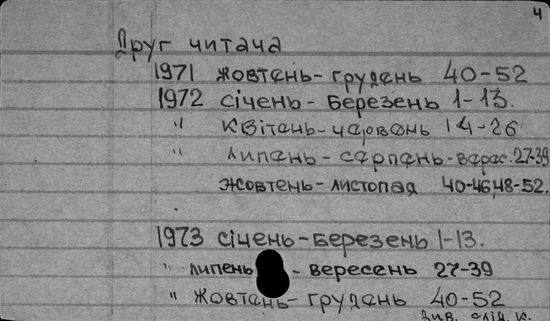 4
Друг читача
1971 жовтень-грудень 40-52
1972 січень - березень 1-13.
" квітень-червень 14-26
" липень-серпень-верес. 27-39
жовтень-листопад 40-46,48-52.
1973 січень-березень 1-13.
" липень - вересень 27-39
" жовтень-грудень 40-52
Див. слід. к.